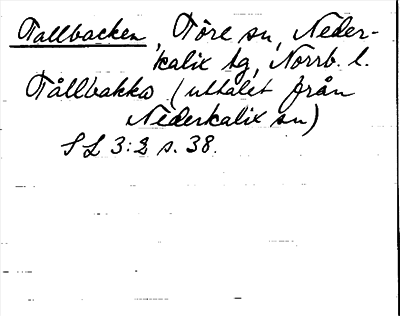 Tallbacken, Töre sn, Neder-
kalix tg, Norrb. l.
Tållbakka (uttalet från
Nederkalix sn)
S L 3:2 s. 38.